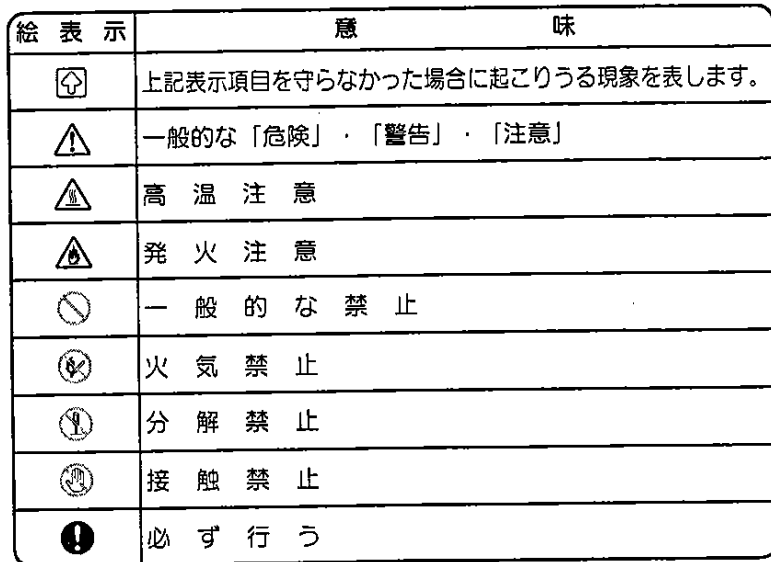 絵表示 意味
上記表示項目を守らなかった場合に起こりうる現象を表します。
一般的な「危険」・「警告」・「注意」
高温注意
発火注意
一般的な禁止
火気禁止
分解禁止
接触禁止
必ず行う